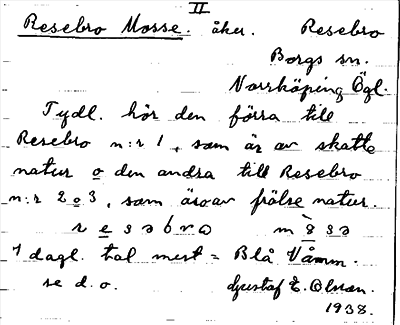 II
Resebro Mosse. åker. Resebro
Borgs sn.
Norrköping Ögl.
Tydl. hör den förra till
Resebro n:r 1, som är av skatte
natur o den andra till Resebro
n:r 2 o 3, som äro av frälse natur.
r e s ə b r ω m ò s ə
I dagl. tal mest = Blå Våmm.
se d. o. Gustaf E. Olsson.
1938.